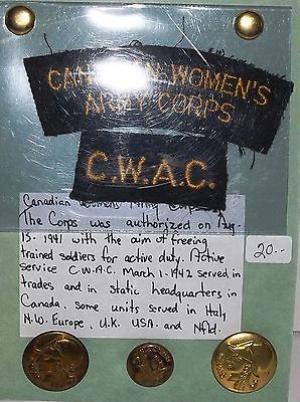 CANADIAN WOMEN'S
ARMY CORPS
C.W.A.C.
Canadian Women's Army Corps
The Corps was authorized on Aug.
13. 1941 with the aim of freeing
trained soldiers for active duty. Active
service C.W.A.C. March 1.1942 served in
trades and in static headquarters in
Canada, some units served in Italy,
N.W. Europe, U.K. USA. and Nfld.
20.--